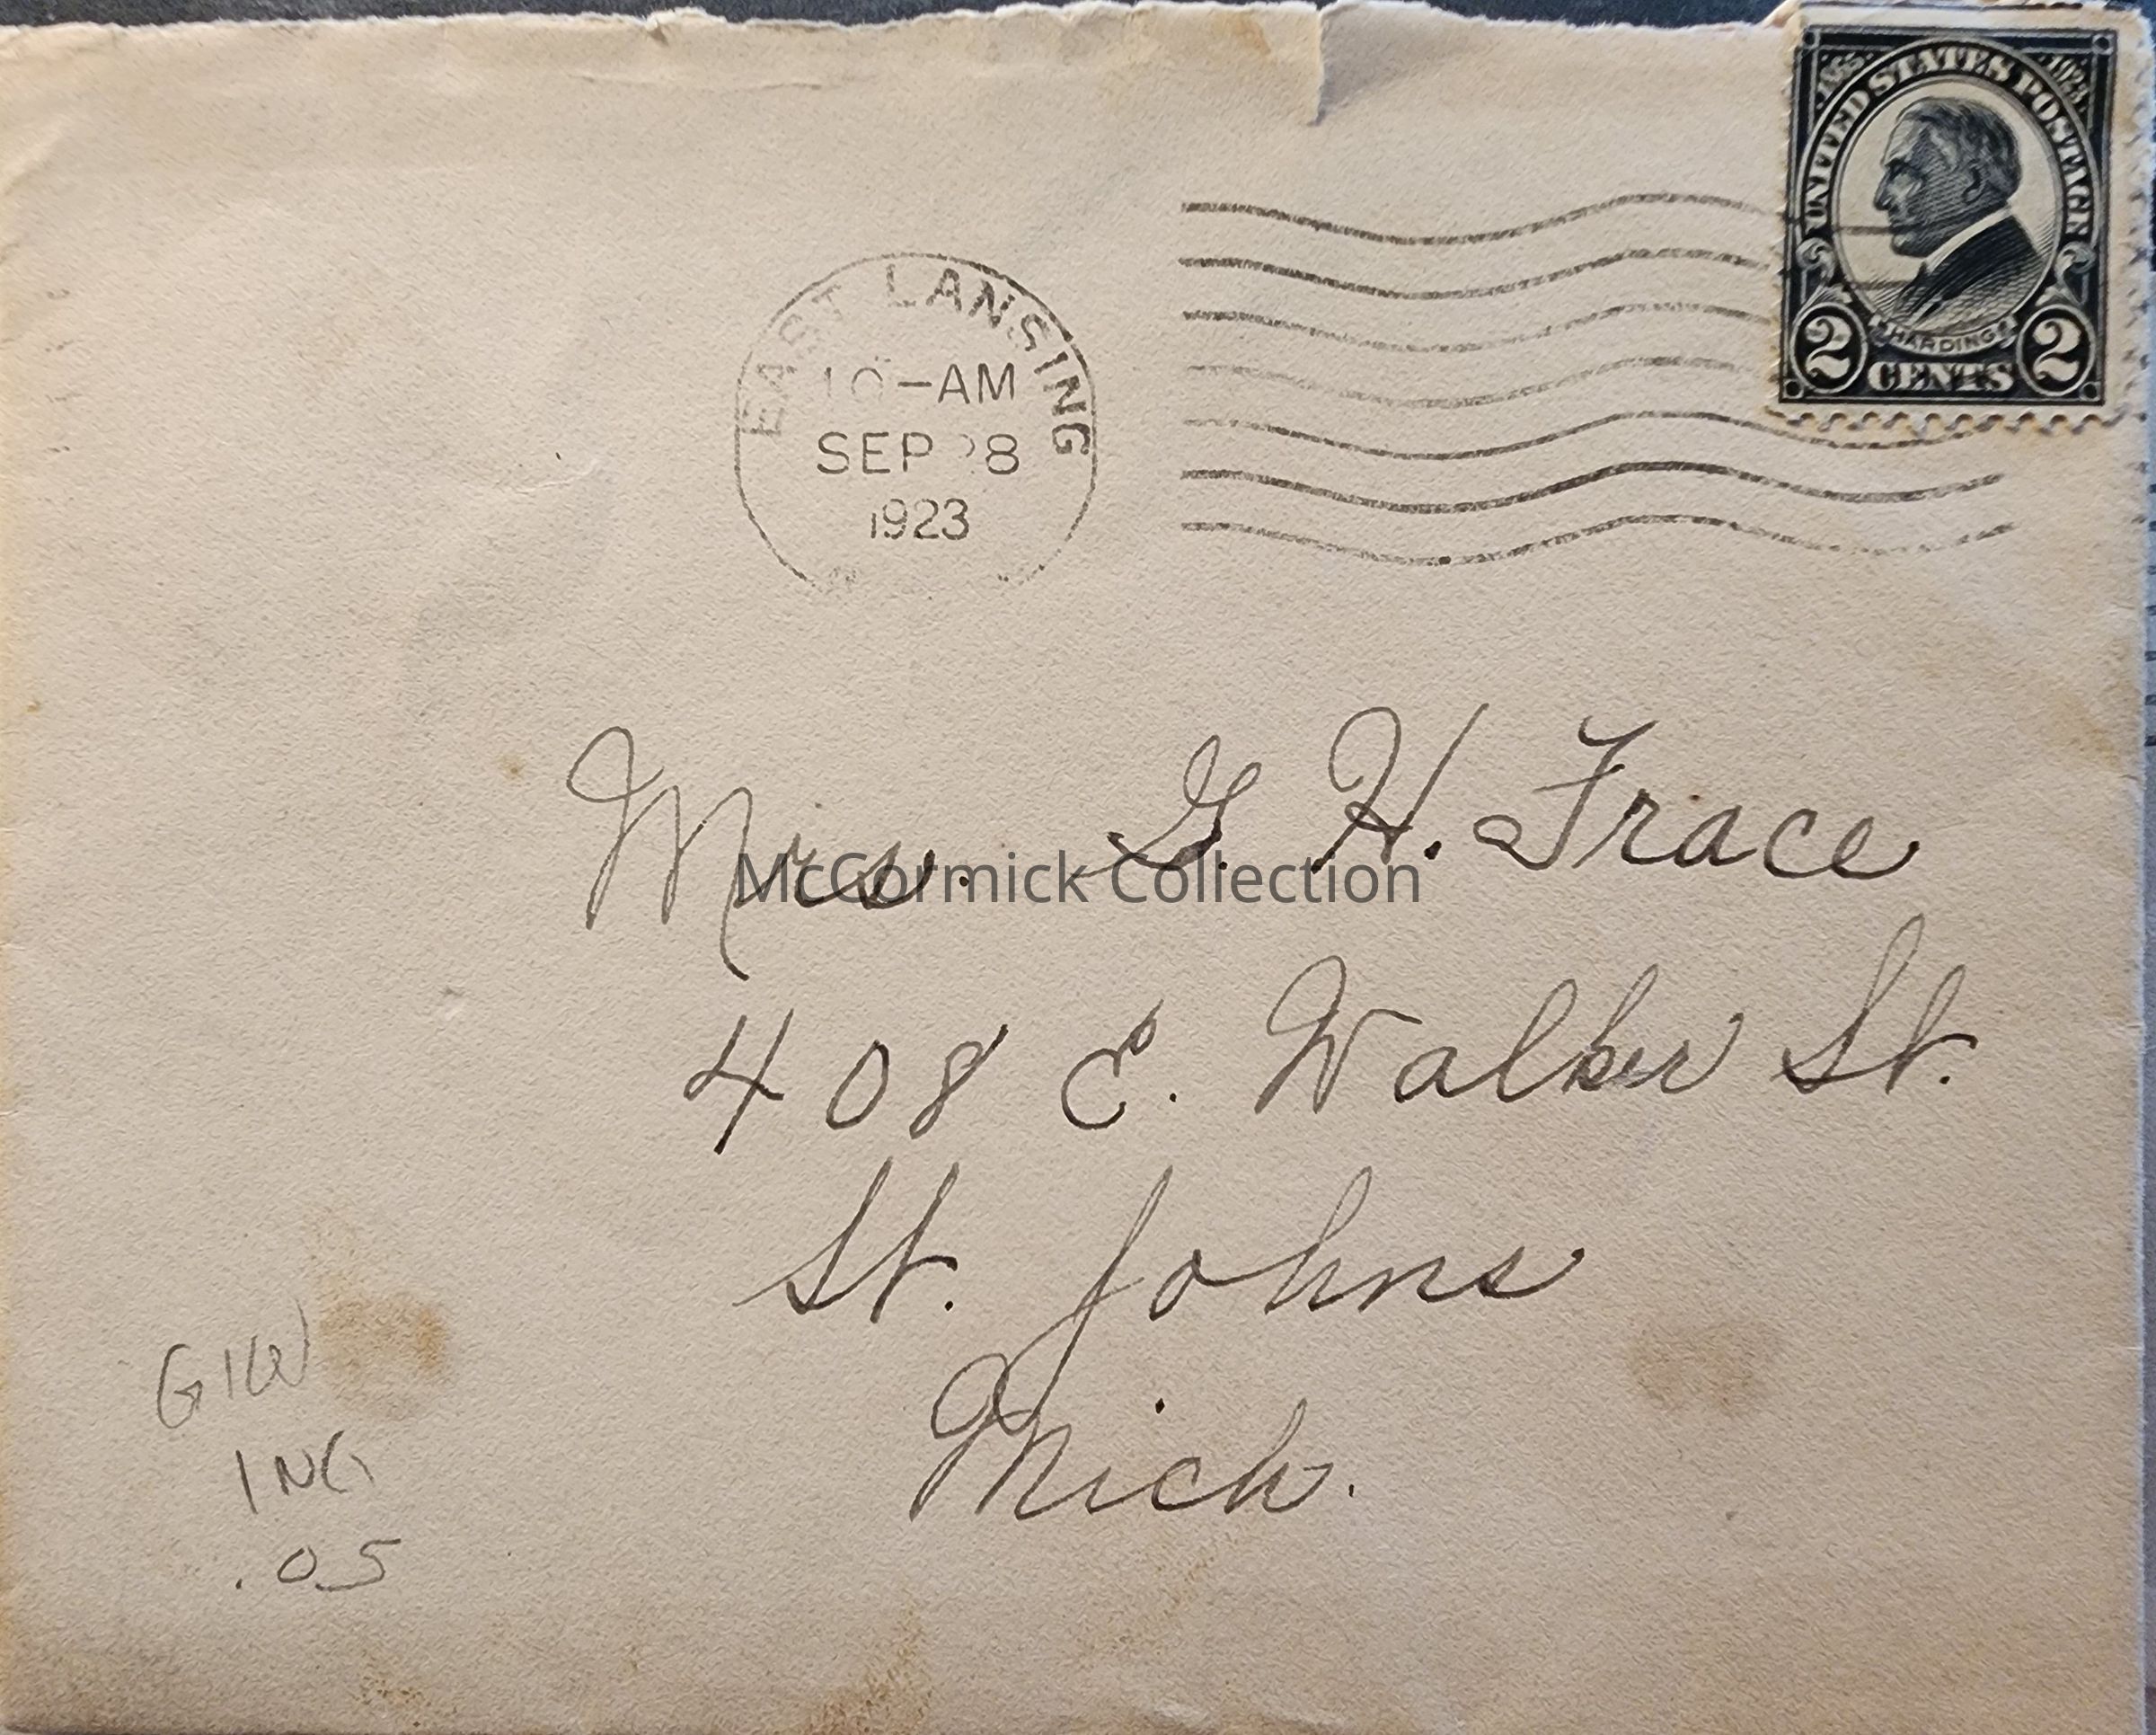 1865 1923
UNITED STATES POSTAGE
HARDING
2 CENTS 2
EAST LANSING
10-AM
SEP 28
1923
Mrs. G. H. Frace
McCormick Collection
408 E. Walker St.
St. Johns
Mich.
ING
.05